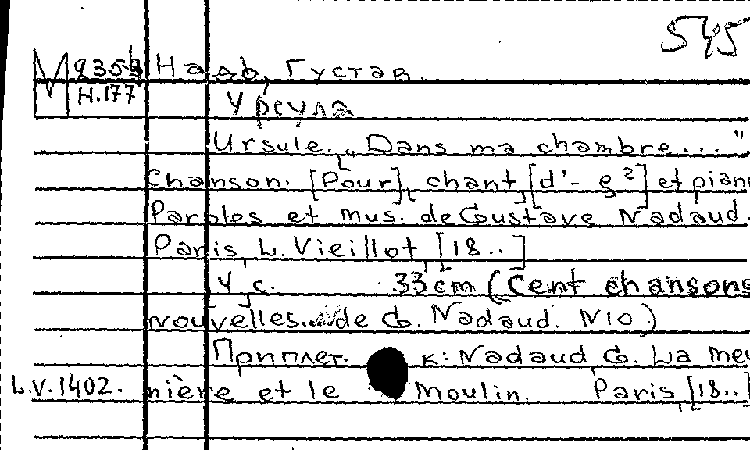 545
М 9353 Надо, Густав.
Н.177 Урсула
Ursule. „Dans ma chambre..."
Chanson. [Pour] chant [d'- g²] et piano
Paroles et mus. de Gustave Nadaud.
Paris, L. Vieillot, [18..]
4 с. 33 cm (Cent chansons
nouvelles de G. Nadaud. N10)
Приплет. к: Nadaud G. La meu
L.V.1402. nière et le Moulin. Paris [18..]